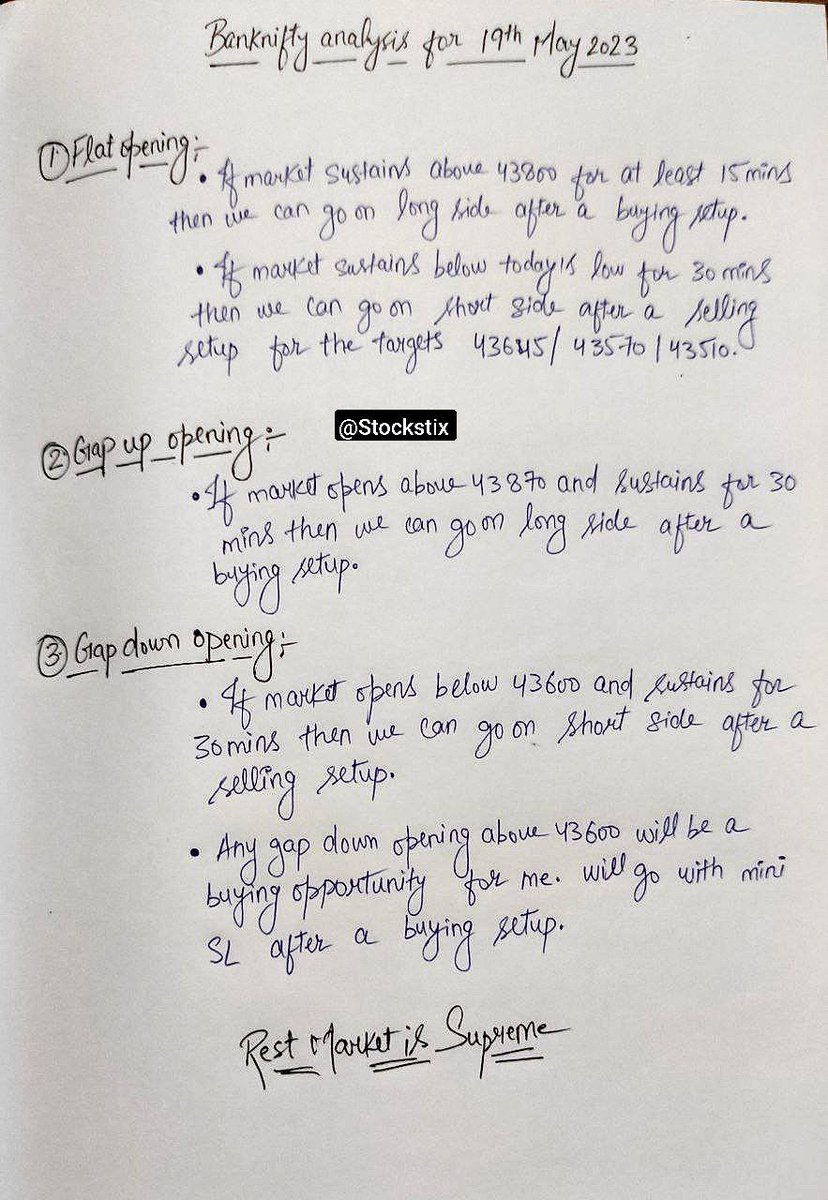 Banknifty analysis for 19th May 2023
① Flat opening:-
• If market sustains above 43800 for at least 15 mins
then we can go on long side after a buying setup.
• If market sustains below today's low for 30 mins
then we can go on short side after a selling
setup for the targets 43645/ 43570 / 43510.
@Stockstix
② Gap up opening:-
• If market opens above 43870 and sustains for 30
mins then we can go on long side after a
buying setup.
③ Gap down opening:-
• If market opens below 43600 and sustains for
30 mins then we can go on short side after a
selling setup.
• Any gap down opening above 43600 will be a
buying opportunity for me. will go with mini
SL after a buying setup.
Rest Market is Supreme